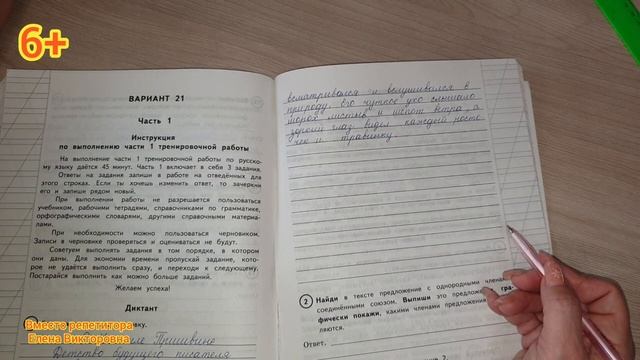 6+
ВАРИАНТ 21
Часть 1
Инструкция
по выполнению части 1 тренировочной работы
На выполнение части 1 тренировочной работы по русско-
му языку даётся 45 минут. Часть 1 включает в себя 3 задания.
Ответы на задания запиши в работе на отведённых для
этого строках. Если ты хочешь изменить ответ, то зачеркни
его и запиши рядом новый.
При выполнении работы не разрешается пользоваться
учебником, рабочими тетрадями, справочниками по грамматике,
орфографическими словарями, другими справочными материа-
лами.
При необходимости можно пользоваться черновиком.
Записи в черновике проверяться и оцениваться не будут.
Советуем выполнять задания в том порядке, в котором
они даны. Для экономии времени пропускай задание, кото-
рое не удаётся выполнить сразу, и переходи к следующему.
Постарайся выполнить как можно больше заданий.
Желаем успеха!
Диктант
Пришвине
Детство будущего писателя
Вместо репетитора
Елена Викторовна
всматривался и вслушивался в
природу. Его чуткое ухо слышало
шорох листьев и шёпот ветра, а
зоркий глаз видел каждый росто-
чек и травинку.
2 Найди в тексте предложение с однородными членами
соединёнными союзом. Выпиши это предложение гра-
фически покажи, какими членами предложения
ляются.
Ответ.